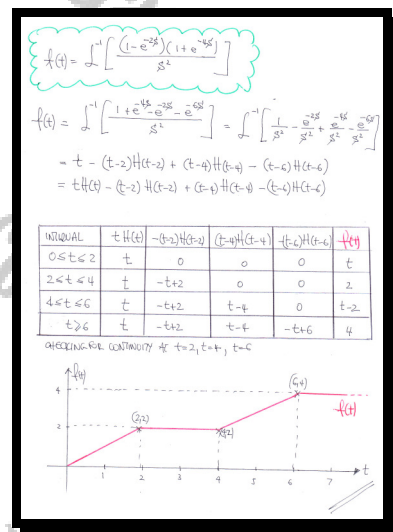 f(t) = ℒ⁻¹[ (1-e^{-2s})(1+e^{-4s}) / s² ]
f(t) = ℒ⁻¹[ (1+e^{-4s}-e^{-2s}-e^{-6s}) / s² ] = ℒ⁻¹[ 1/s² - e^{-2s}/s² + e^{-4s}/s² - e^{-6s}/s² ]
= t - (t-2)H(t-2) + (t-4)H(t-4) - (t-6)H(t-6)
= tH(t) - (t-2)H(t-2) + (t-4)H(t-4) - (t-6)H(t-6)
INTERVAL t H(t) -(t-2)H(t-2) (t-4)H(t-4) -(t-6)H(t-6) f(t)
0≤t≤2 t 0 0 0 t
2≤t≤4 t -t+2 0 0 2
4≤t≤6 t -t+2 t-4 0 t-2
t≥6 t -t+2 t-4 -t+6 4
CHECKING FOR CONTINUITY AT t=2, t=4, t=6
f(t)
4 (6,4)
f(t)
2 (2,2) (4,2)
t
1 2 3 4 5 6 7